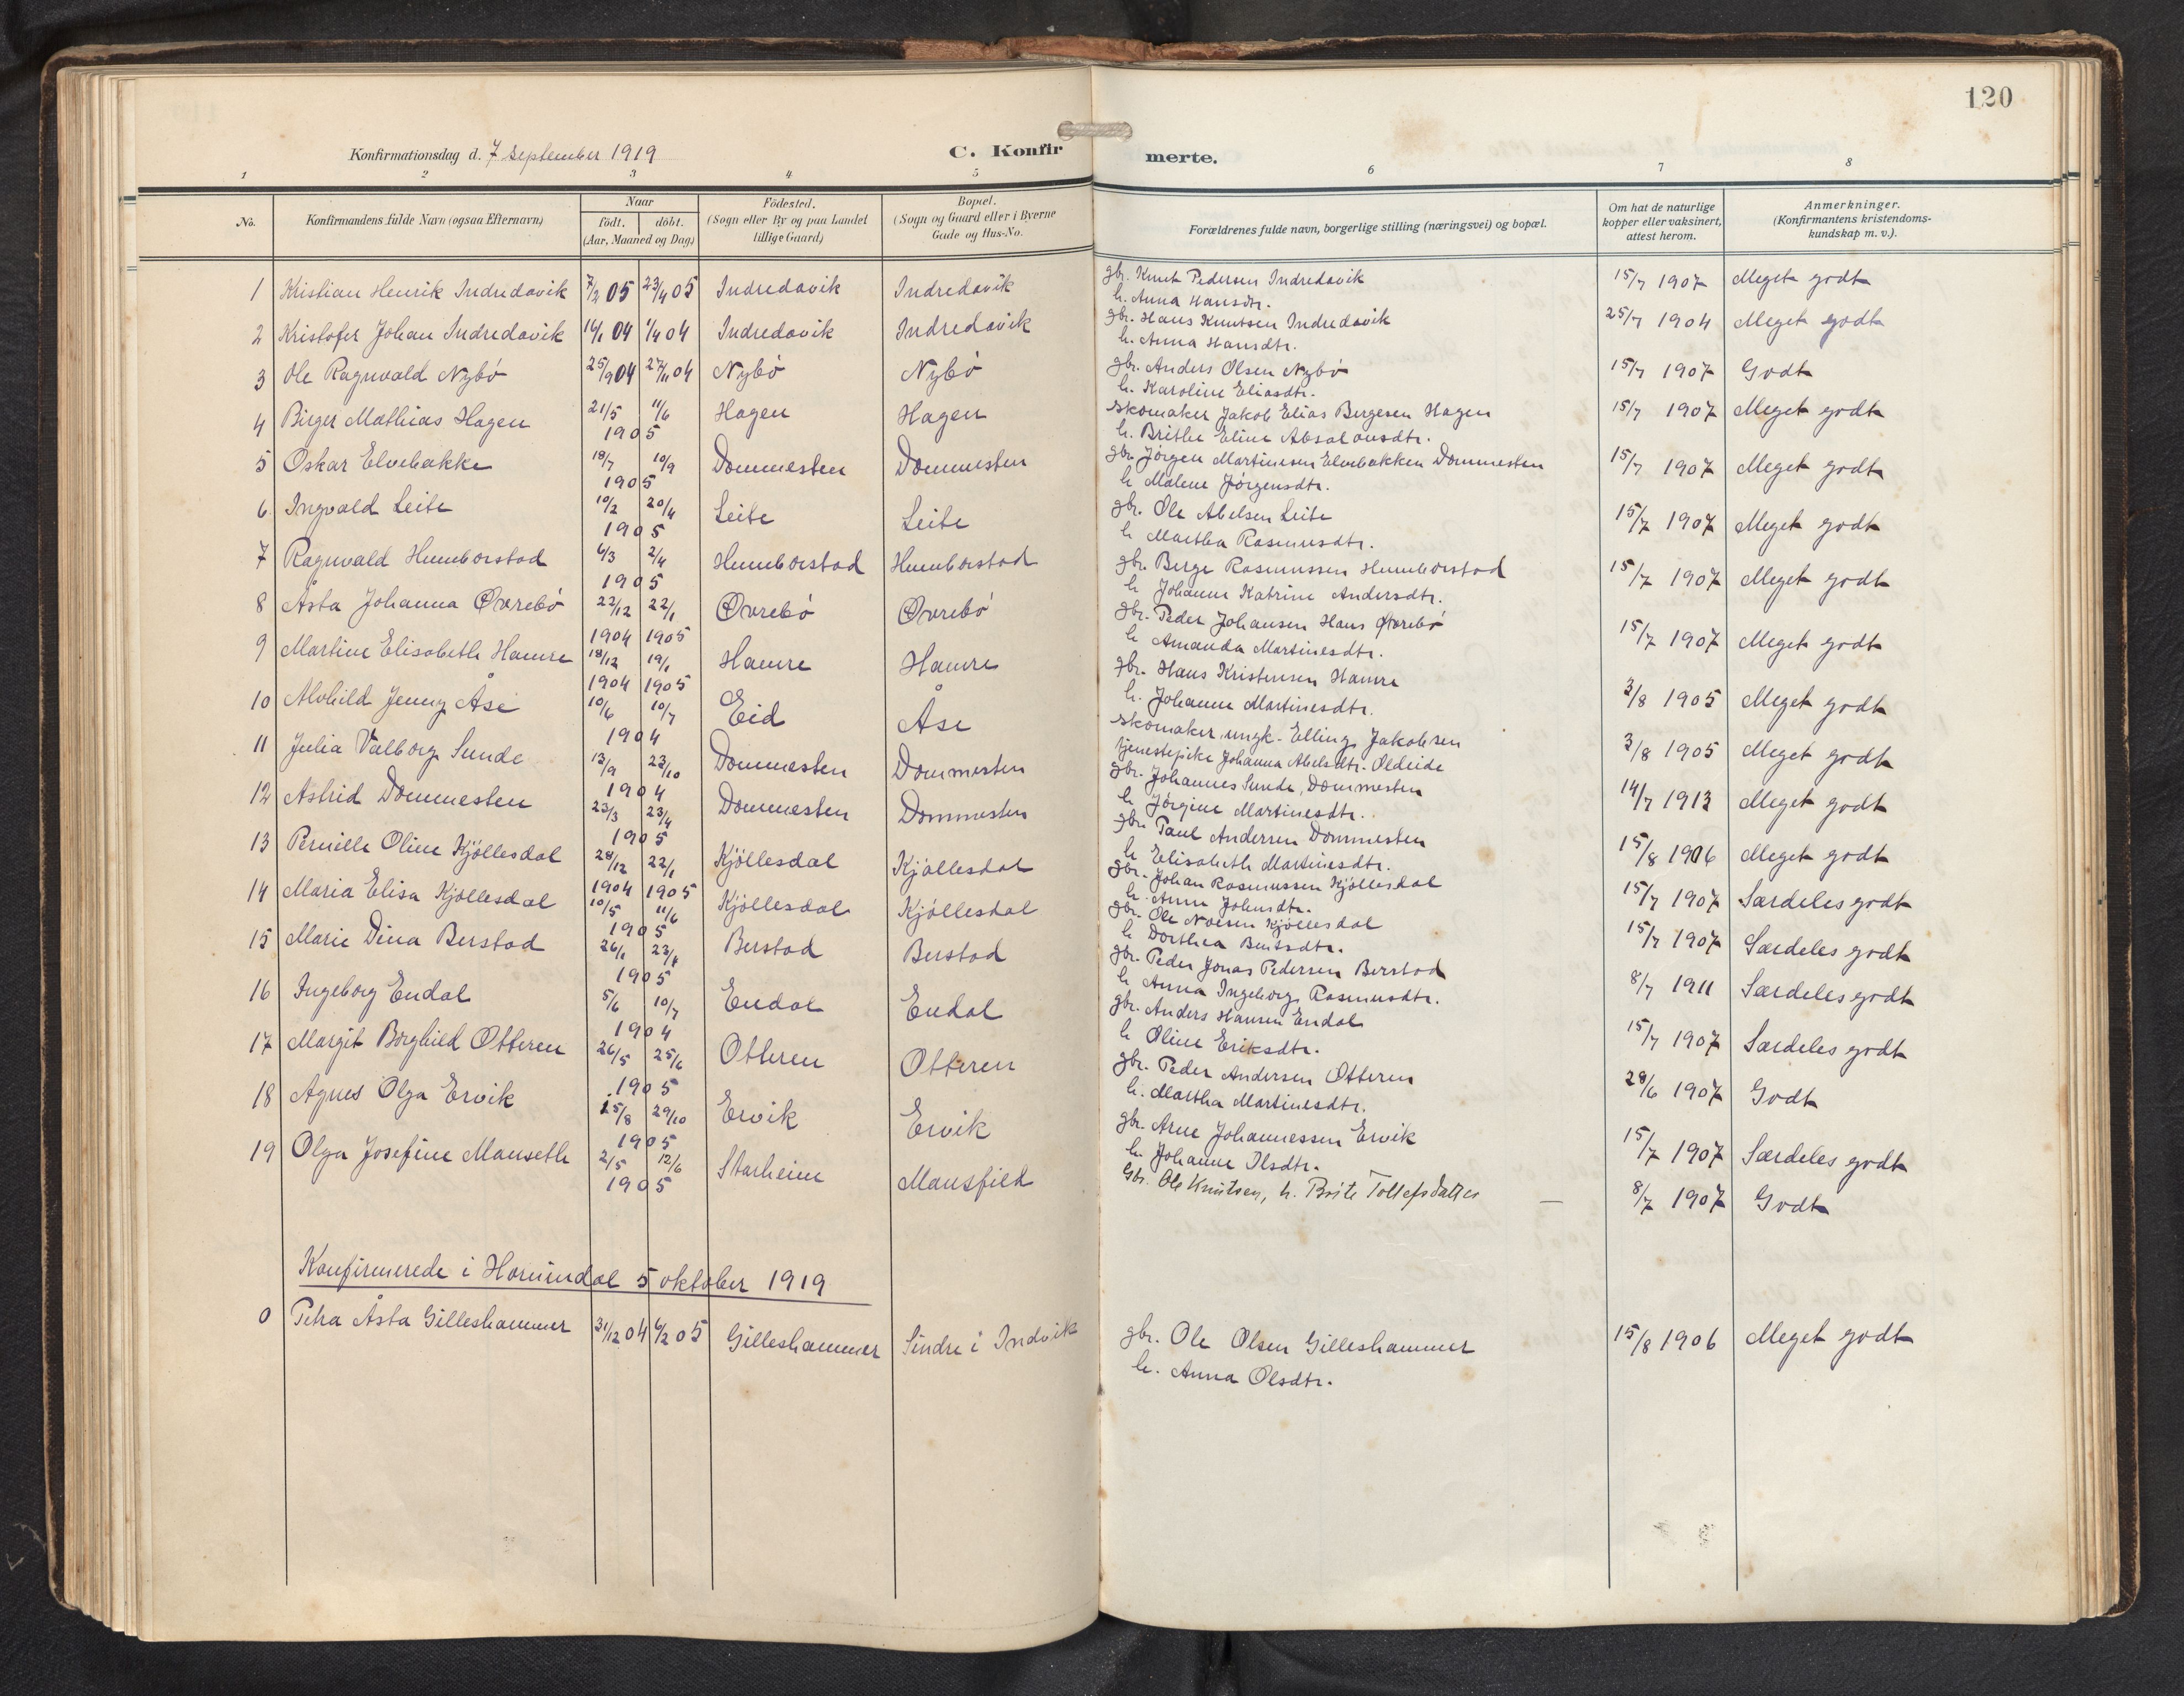 120
Konfirmationsdag d. 7 september 1919
C. Konfirmerte.
1 2 3 4 5 6 7 8
No.
Konfirmandens fulde Navn (ogsaa Efternavn)
Naar
födt. döbt.
(Aar, Maaned og Dag)
Födested.
(Sogn eller By og paa Landet
tillige Gaard)
Bopæl.
(Sogn og Gaard eller i Byerne
Gade og Hus-No.
Forældrenes fulde navn, borgerlige stilling (næringsvei) og bopæl.
Om hat de naturlige
kopper eller vaksinert,
attest herom.
Anmerkninger.
(Konfirmantens kristendoms-
kundskap m. v.).
1 Kristian Henrik Indredavik 7/2 05 23/4 05 Indredavik Indredavik gbr. Knut Pedersen Indredavik 15/7 1907 Meget godt
h. Anna Hansdtr.
2 Kristofer Johan Indredavik 16/1 04 1/4 04 Indredavik Indredavik gbr. Hans Knutsen Indredavik 25/7 1904 Meget godt
h. Anna Hansdtr.
3 Ole Ragnvald Nybö 25/9 04 27/11 04 Nybö Nybö gbr. Anders Olsen Nybö 15/7 1907 Godt
h. Karoline Eliasdtr.
4 Birger Mathias Hagen 21/5 11/6 Hagen Hagen skomaker Jakob Elias Birgesen Hagen 15/7 1907 Meget godt
1905 h. Brithe Eline Absalonsdtr.
5 Oskar Elvebakke 18/7 10/9 Dommesten Dommesten gbr. Jörgen Martinusen Elvebakken Dommesten 15/7 1907 Meget godt
1905 h Malene Jörgensdtr.
6 Ingvald Leite 10/2 20/4 Leite Leite gbr. Ole Abelsen Leite 15/7 1907 Meget godt
1905 h Martha Rasmusdtr.
7 Ragnvald Humborstad 6/3 2/4 Humborstad Humborstad gbr. Berge Rasmussen Humborstad 15/7 1907 Meget godt
1905 h Johanne Katrine Andersdtr.
8 Åsta Johanna Övrebö 22/12 22/1 Övrebö Övrebö gbr. Peder Johansen Hans Övrebö 15/7 1907 Meget godt
1904 1905 h Amanda Martinesdtr.
9 Martine Elisabeth Hamre 18/12 19/1 Hamre Hamre gbr. Hans Kristensen Hamre 3/8 1905 Meget godt
1904 1905 h. Johanne Martinesdtr.
10 Alvhild Jenny Åse 10/6 10/7 Eid Åse skomaker, ungk. Elling Jakobsen 3/8 1905 Meget godt
1904 tjenestepike Johanna Abelsdtr. Oldeide
11 Julia Valborg Sunde 13/9 23/10 Dommesten Dommesten gbr. Johannes Sunde, Dommesten 14/7 1913 Meget godt
1904 h Jörgine Martinesdtr.
12 Astrid Dommesten 23/3 23/4 Dommesten Dommesten gbr Paul Andersen Dommesten 15/8 1906 Meget godt
1905 h Elisabeth Martinesdtr.
13 Pernille Oline Kjöllesdal 28/12 22/1 Kjöllesdal Kjöllesdal gbr. Johan Rasmussen Kjöllesdal 15/7 1907 Særdeles godt
1904 1905 h. Anne Johnsdtr.
14 Maria Elisa Kjöllesdal 10/5 11/6 Kjöllesdal Kjöllesdal gbr. Ole Kjöllesdal 15/7 1907 Særdeles godt
1905 h Dorthea Bentsdtr.
15 Marie Dina Berstad 26/1 23/4 Berstad Berstad gbr. Peder Jonas Pedersen Berstad 8/7 1911 Særdeles godt
1905 h Anna Ingeborg Rasmusdtr.
16 Ingeborg Endal 5/6 10/7 Endal Endal gbr. Anders Hansen Endal 15/7 1907 Særdeles godt
1904 h Oline Eriksdtr.
17 Margit Borghild Otteren 26/5 25/6 Otteren Otteren gbr. Peder Andersen Otteren 28/6 1907 Godt
1905 h. Martha Martinesdtr.
18 Agnes Olga Ervik 25/8 29/10 Ervik Ervik gbr. Arne Johannessen Ervik 15/7 1907 Særdeles godt
1905 h. Johanne Olsdtr.
19 Olga Josefine Manseth 2/5 12/6 Starheim Mansfield Gbr. Ole Knutsen, h. Brite Tollefsdatter — 8/7 1907 Godt
1905
Konfirmerede i Hornindal 5 oktober 1919
0 Petra Åsta Gilleshammer 31/12 04 6/2 05 Gilleshammer Sindre i Indvik gbr. Ole Olsen Gilleshammer 15/8 1906 Meget godt
h. Anna Olsdtr.